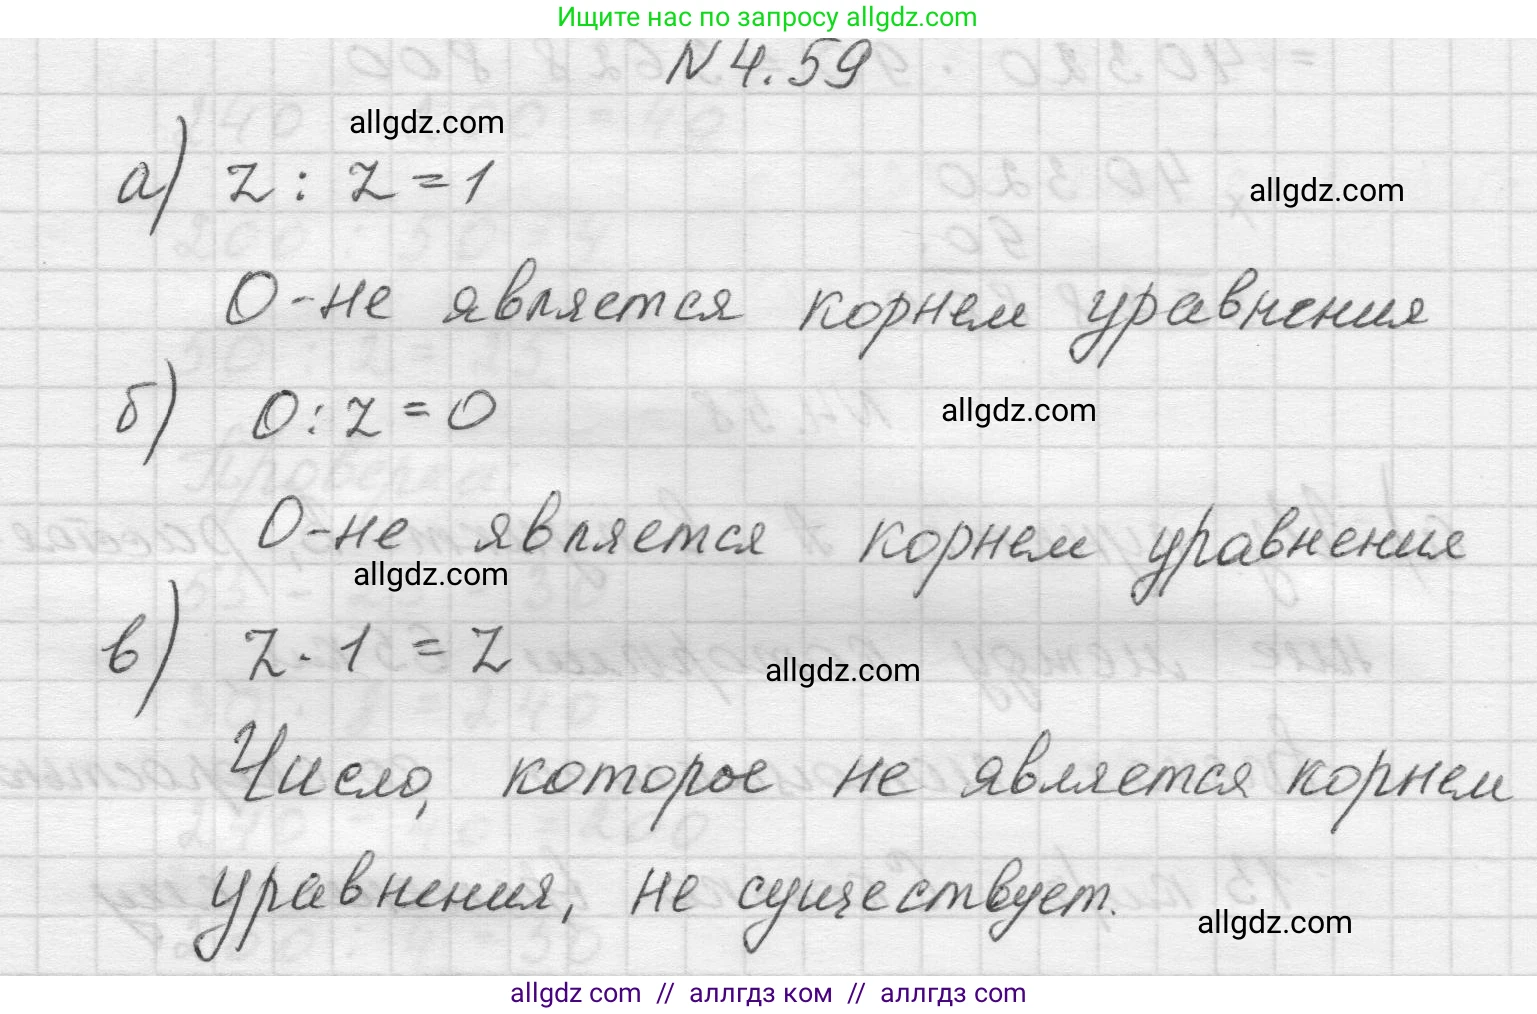 Ищите нас по запросу allgdz.com
N 4.59
allgdz.com
а) z : z = 1
allgdz.com
0 - не является корнем уравнения
б) 0 : z = 0
allgdz.com
0 - не является корнем уравнения
allgdz.com
в) z · 1 = z
allgdz.com
Число, которое не является корнем
уравнения, не существует.
allgdz.com
allgdz com // аллгдз ком // аллгдз com